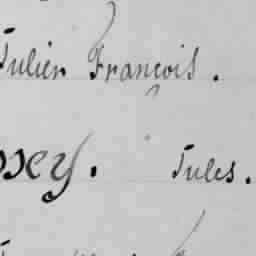 Julien François.
oxey. Jules.